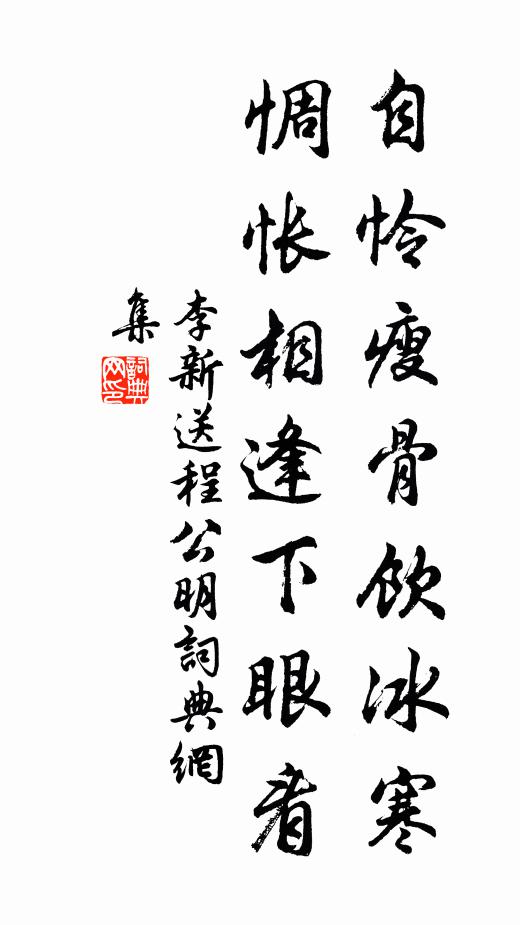 自怜瘦骨饮冰寒
惆怅相逢下眼看
李新送程公明詞典網
集
詞典网印